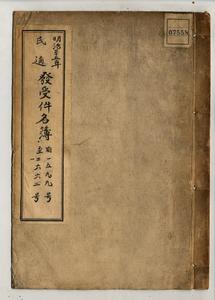 明治三十五年
民適 發受件名簿
自一五九九號
至二六六二號
07558